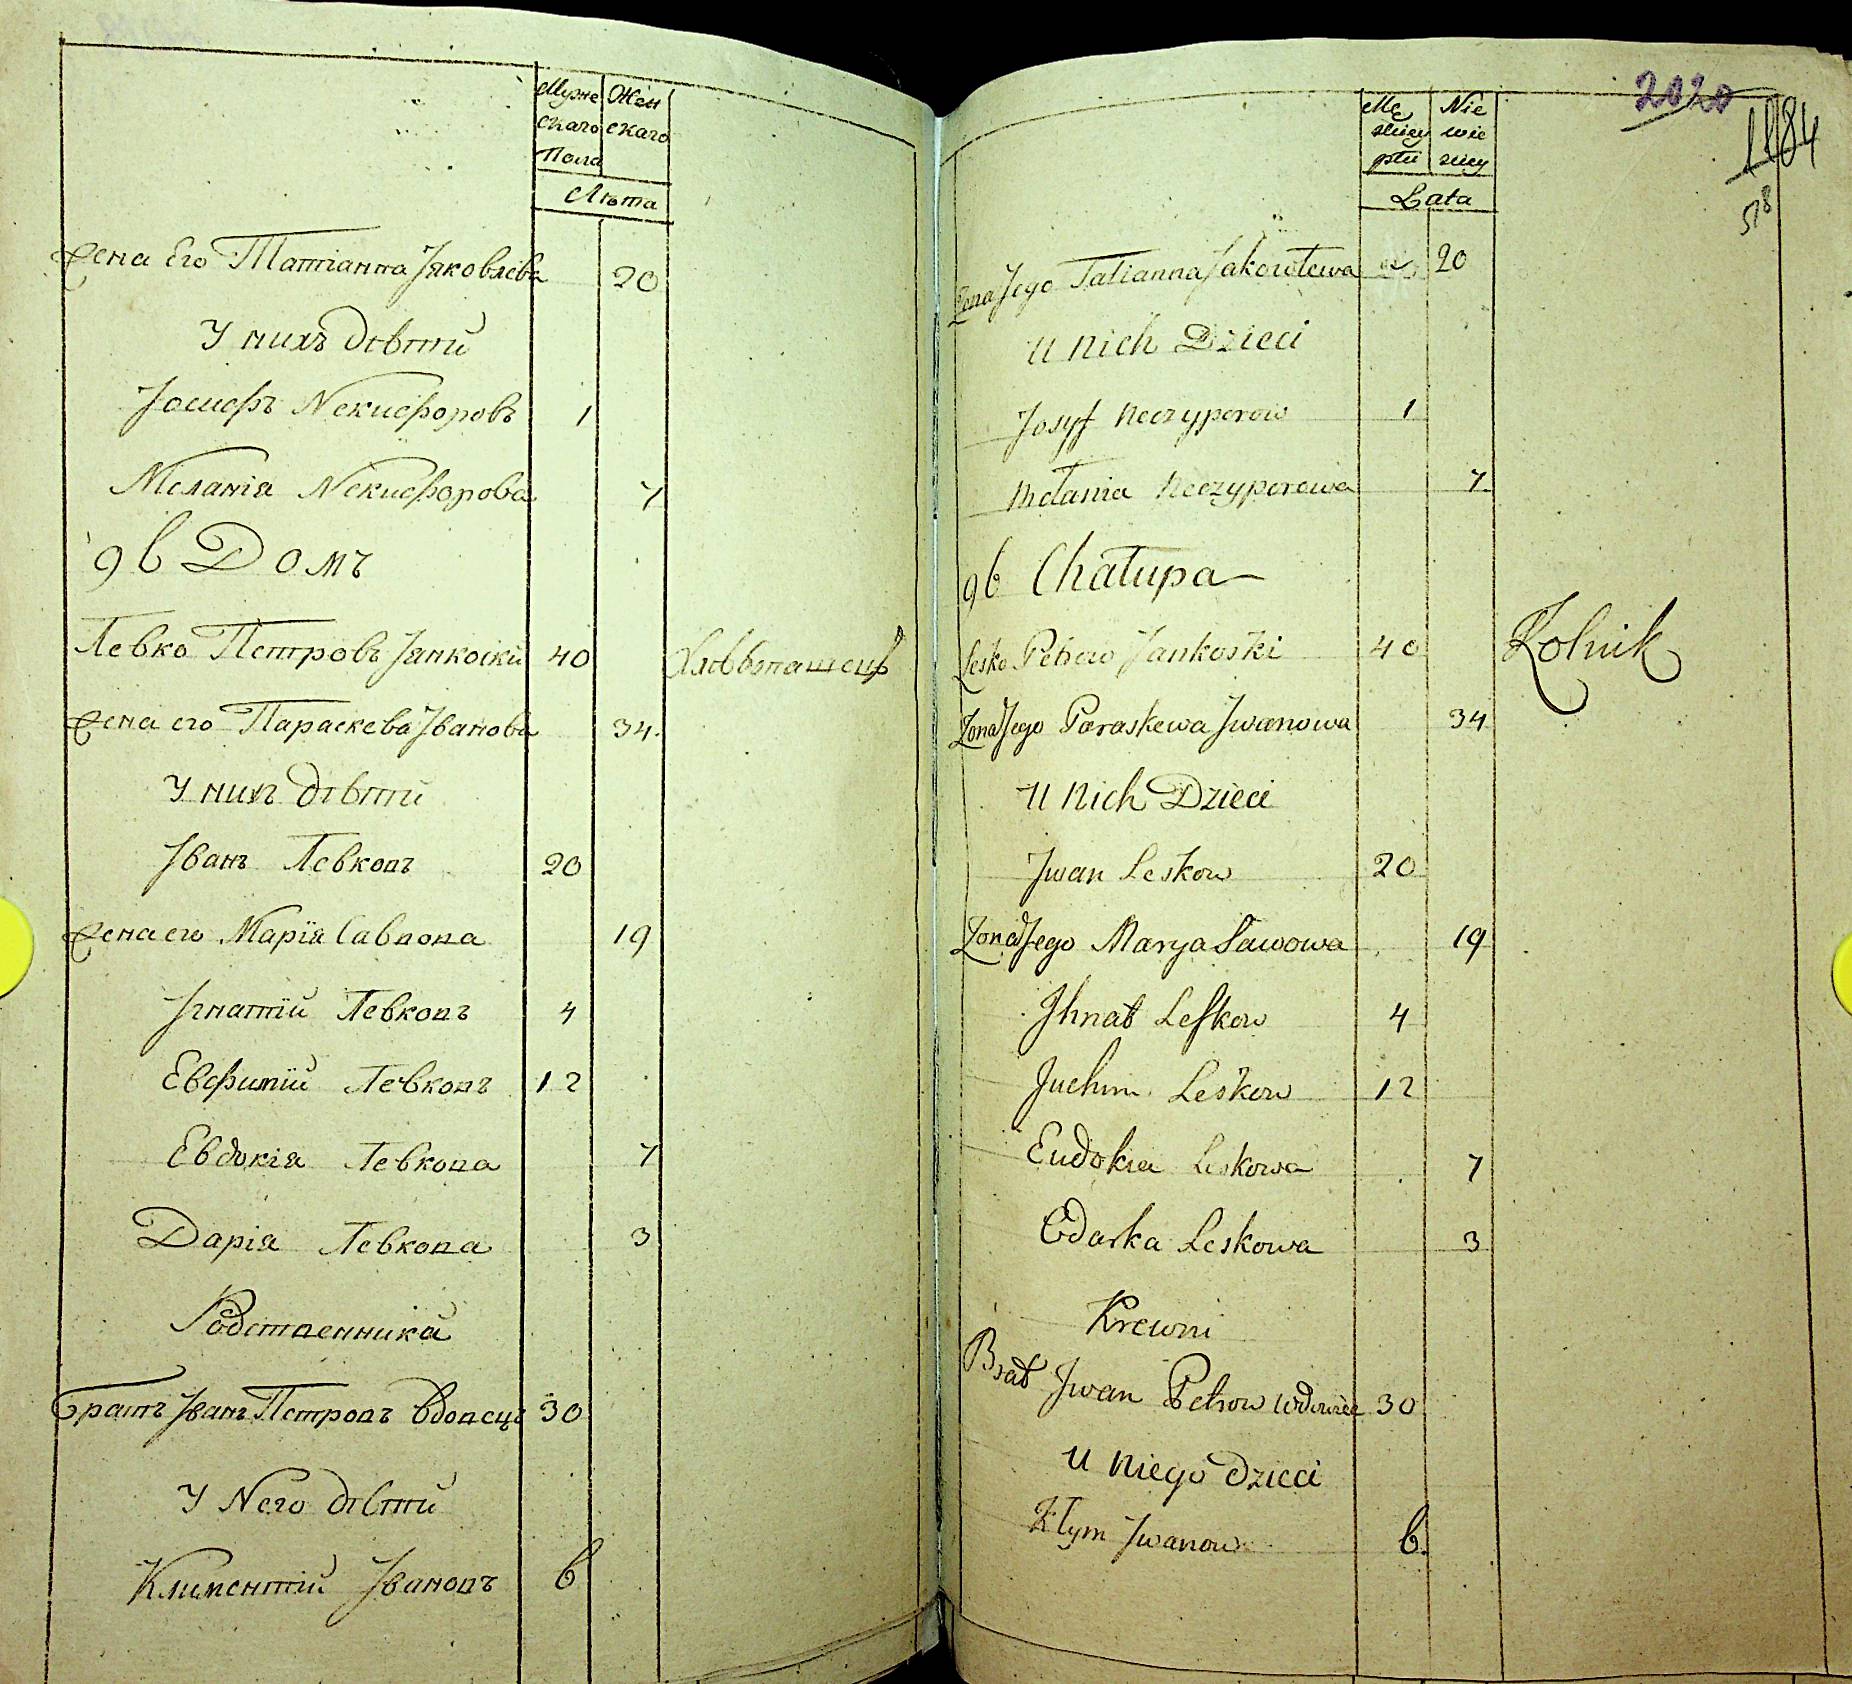 Муже Жен
скаго скаго
Пола
Лѣта
Жена Его Татіанна Яковлева 20
У нихъ дѣти
Іосифъ Некифоровъ 1
Меланія Некифорова 7
96 Домъ
Левко Петровъ Янкоскій 40 Хлѣбопашецъ
Жена его Параскева Іванова 34
У нихъ дѣти
Іванъ Левковъ 20
Жена его Марія Савова 19
Ігнатій Левковъ 4
Евфимій Левковъ 12
Евдокія Левкова 7
Дарія Левкова 3
Родственники
Братъ Іванъ Петровъ вдовецъ 30
У Него дѣти
Климентій Івановъ 6
2020
1184
518
Mę Nie
skiey wie
płci sciey
Lata
Żona Jego Tatianna Jakowlewa 20
U Nich Dzieci
Josyf Neczyporow 1
Melania Neczyporowa 7
96 Chałupa
Lesko Petrow Jankoski 40 Rolnik
Żona Jego Paraskewa Jwanowa 34
U Nich Dzieci
Jwan Leskow 20
Żona Jego Marya Sawowa 19
Jhnat Lefkow 4
Juchim Leskow 12
Eudokia Leskowa 7
Odarka Leskowa 3
Krewni
Brat Jwan Petrow wdowiec 30
U Niego dzieci
Kłym Jwanow 6